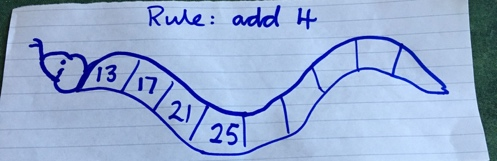 Rule: add 4
13 17 21 25